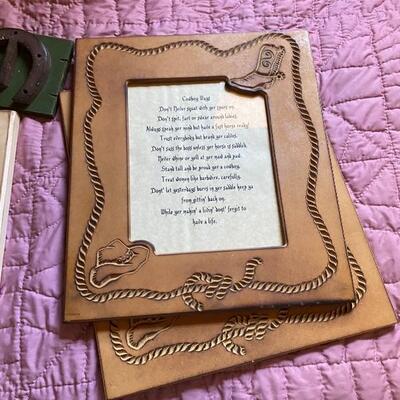 Cowboy Ways
Don't Never squat with yer spurs on.
Don't spit, fart or swear around ladies.
Always speak yer mind but have a fast horse ready!
Trust everybody but brand yer calves.
Don't sass the boss unless yer horse is saddled.
Never whine or yell at yer maw and paw.
Stand tall and be proud yer a cowboy.
Treat women like barbwire, carefully.
Dont' let yesterdays burrs in yer saddle keep ya
from gittin' back on.
While yer makin' a livin' dont' fergit to
have a life.